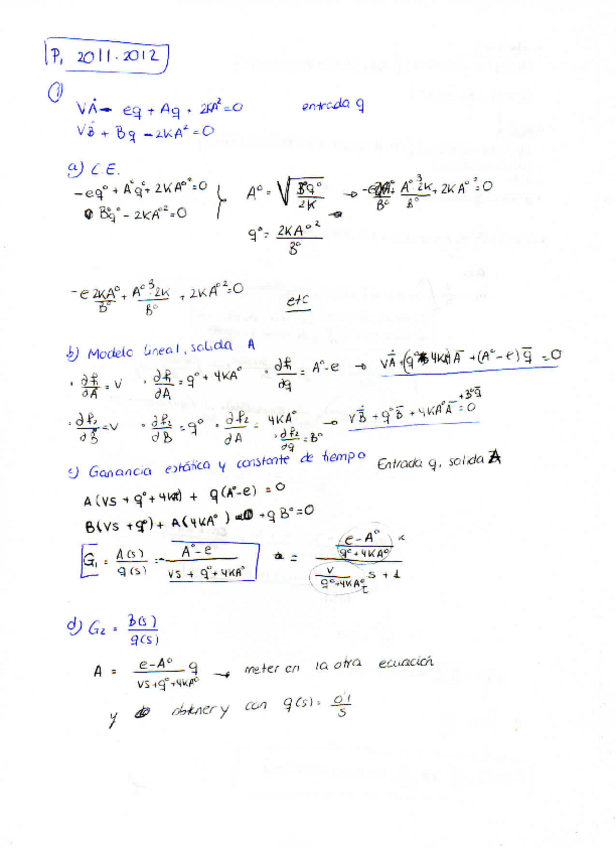 P, 2011-2012
①
VȦ - eq + Aq + 2KA² = 0 entrada q
VḂ + Bq - 2KA² = 0
a) C.E.
-eq° + A°q° + 2KA°² = 0
Bq° - 2KA°² = 0
A° = √(B°q°/2K)
q° = 2KA°²/B°
+ A°³2K/B° + 2KA°² = 0
-e 2KA°/B° + A°³2K/B° + 2KA°² = 0
etc
b) Modelo lineal, salida A
· ∂f₁/∂Ȧ = V · ∂f₁/∂A = q° + 4KA° · ∂f₁/∂q = A° - e → + (A° - e) q̄ = 0
· ∂f₂/∂Ḃ = V · ∂f₂/∂B = q° · ∂f₂/∂A = 4KA° · ∂f₂/∂q = B° → VḂ + q°B̄ + 4KA°Ā + B°q̄ = 0
c) Ganancia estática y constante de tiempo Entrada q, salida A
A(VS + q° + 4KA°) + q(A° - e) = 0
B(VS + q°) + A(4KA°) + qB° = 0
G₁ = A(s)/q(s) = - (A° - e)/(VS + q° + 4KA°) = ((e - A°)/(q° + 4KA°))/((V/(q° + 4KA°)) S + 1)
d) G₂ = B(s)/q(s)
A = (e - A°)/(VS + q° + 4KA°) q → meter en la otra ecuación
y obtener y con q(s) = 0'1/S